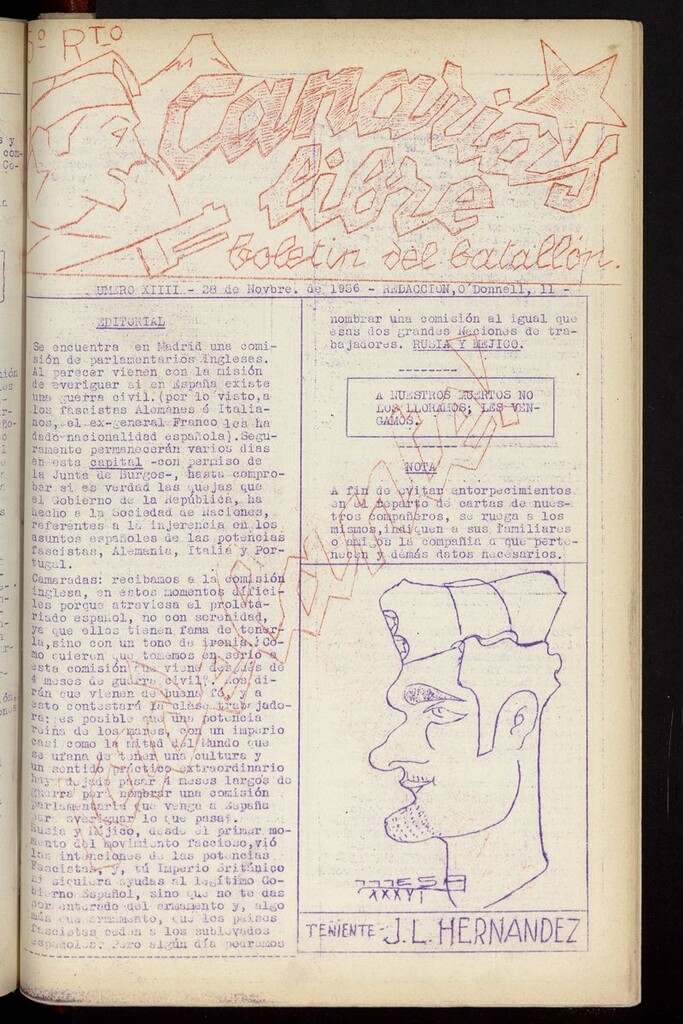 5º RTO
Canarias
libre
boletin del batallón.
UMERO XIIII - 28 de Novbre. de 1936 - REDACCION, O'Donnell, 11 -
EDITORIAL
Se encuentra en Madrid una comi-
sión de parlamentarios ingleses.
Al parecer vienen con la misión
de averiguar si en España existe
una guerra civil. (por lo visto, a
los fascistas Alemanes é Italia-
nos, el ex-general Franco les ha
dado nacionalidad española). Segu-
ramente permanecerán varios días
en esta capital -con permiso de
la Junta de Burgos-, hasta compro-
bar si es verdad las quejas que
el Gobierno de la República, ha
hecho a la Sociedad de Naciones,
referentes a la injerencia en los
asuntos españoles de las potencias
fascistas, Alemania, Italia y Por-
tugal.
Camaradas: recibamos a la comisión
inglesa, en estos momentos difíci-
les porque atraviesa el proleta-
riado español, no con serenidad,
ya que ellos tienen fama de tener-
la, sino con un tono de ironía. ¿Có-
mo quieren que tomemos en serio a
esta comisión que viene después de
4 meses de guerra civil?. Nos di-
rán que vienen de buena fé, y a
esto contestará la clase trabajado-
ra: ¿es posible que una potencia
reina de los mares, con un imperio
casi como la mitad del Mundo que
se ufana de tener una cultura y
un sentido práctico extraordinario
hay dejado pasar 4 meses largos de
guerra para nombrar una comisión
parlamentaria que venga a España
para averiguar lo que pasa?.
Rusia y Méjico, desde el primer mo-
mento del movimiento faccioso, vió
las intenciones de las potencias
Fascistas, y, tú Imperio Británico
ni siquiera ayudas al legítimo Go-
bierno Español, sino que no te das
por enterado del armamento y, algo
más que armamento, que los paises
fascistas ceden a los sublevados
españoles. Pero algún día podremos
nombrar una comisión al igual que
esas dos grandes Naciones de tra-
bajadores. RUSIA Y MEJICO.
A NUESTROS MUERTOS NO
LOS LLORAMOS; LES VEN-
GAMOS.
NOTA
A fin de evitar entorpecimientos
en el reparto de cartas de nues-
tros compañeros, se ruega a los
mismos, indiquen a sus familiares
o amigos la compañia a que perte-
necen y demás datos necesarios.
MESA
XXXVI
TENIENTE - J.L. HERNANDEZ